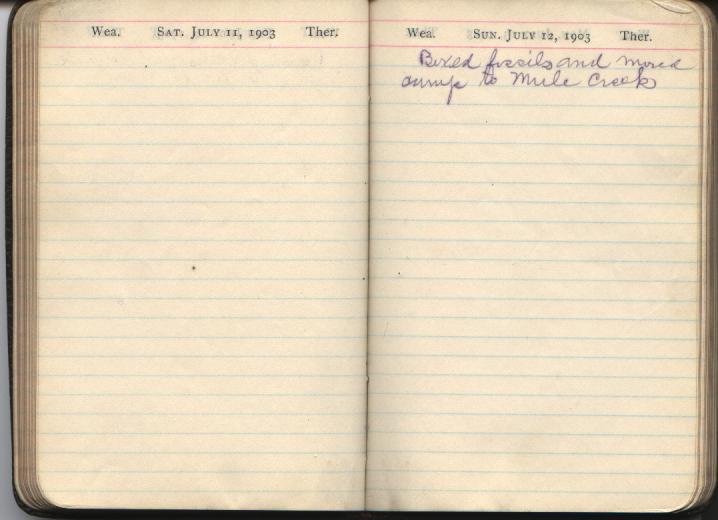 Wea. Sat. July 11, 1903 Ther.
Wea. Sun. July 12, 1903 Ther.
Boxed fossils and moved
camp to Mule Creek